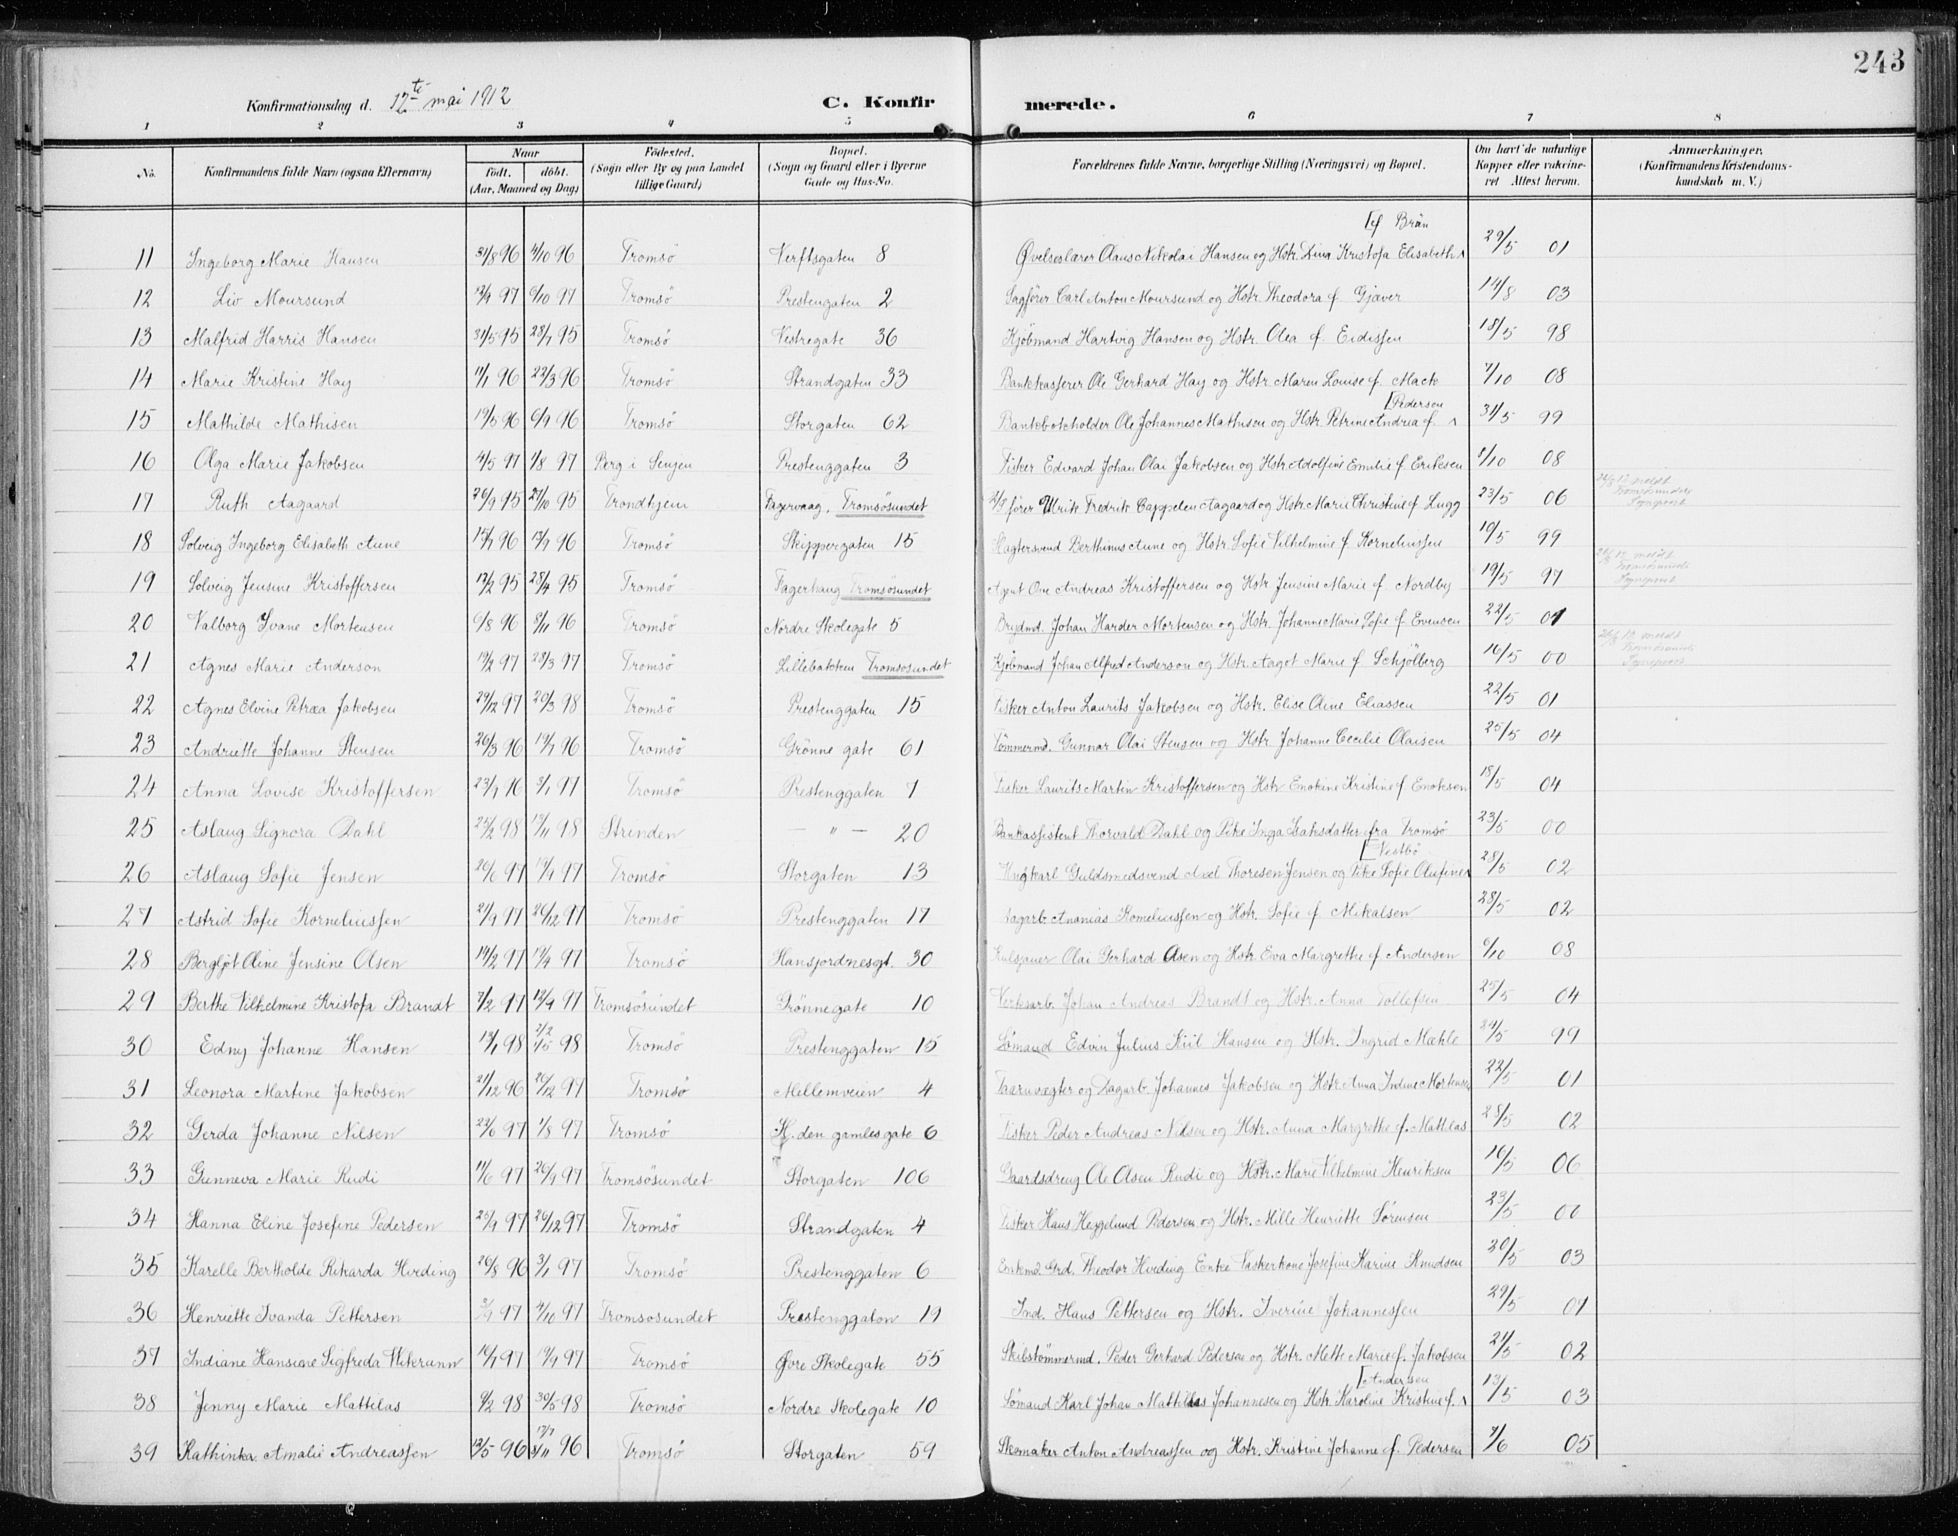 243
Konfirmationsdag d. 12te mai 1912 C. Konfirmerede.
1 2 3 4 5 6 7 8
No. Konfirmandens fulde Navn (ogsaa Efternavn) Naar født. døbt. (Aar, Maaned og Dag) Fødested. (Sogn eller By og paa Landet tillige Gaard) Bopæl. (Sogn og Gaard eller i Byerne Gade og Hus-No. Forældrenes fulde Navne, borgerlige Stilling (Næringsvei) og Bopæl. Om havt de naturlige Kopper eller vakcineret Attest herom. Anmærkninger. (Konfirmandens Kristendomskundskab m. V.)
[f Brún
11 Ingeborg Marie Hansen 31/8 96 4/10 96 Tromsö Verftsgaten 8 Øvelseslærer Olaus Nikolai Hansen og Hstr. Dina Kristofa Elisabeth 29/5 01
12 Liv Moursund 97 6/10 97 Tromsö Prestengaten 2 Sagfører Carl Anton Moursund og Hstr. Theodora f. Gjæver 14/8 03
13 Malfrid Harris Hansen 31/5 95 28/7 95 Tromsö Vestregate 36 Kjöbmand Hartvig Hansen og Hstr. Olea f. Eidissen 18/5 98
14 Marie Kristine Hay 11/1 96 22/3 96 Tromsö Strandgaten 33 Bankkasserer Ole Gerhard Hay og Hstr. Maren Louise f. Mack 7/10 08
[Pedersen
15 Mathilde Mathisen 19/5 96 6/9 96 Tromsö Storgaten 62 Bankbokholder Ole Johannes Mathisen og Hstr. Petrine Andrea f. 31/5 99
16 Olga Marie Jakobsen 4/5 97 1/8 97 Berg i Senjen Prestenggaten 3 Fisker Edvard Johan Olai Jakobsen og Hstr. Adolfine Emilie f. Eriksen 1/10 08
17 Ruth Aagaard 26/9 95 27/10 95 Trondhjem Fagervaag, Tromsösundet fører Ulrik Fredrik Cappelen Aagaard og Hstr. Marie Christine f. Lugg 23/5 06 meldt Tromsösundets Sogneprest
18 Solveig Ingeborg Elisabeth Aune 96 96 Tromsö Skippergaten 15 Slagtersvend Berthinus Aune og Hstr. Sofie Vilhelmine f. Korneliussen 19/5 99
19 Solveig Jensine Kristoffersen 95 28/4 95 Tromsö Fagerhaug Tromsösundet Agent Ove Andreas Kristoffersen og Hstr. Jensine Marie f. Nordby 19/5 97 meldt Tromsösunds Sogneprest
20 Valborg Ivane Mortensen 6/8 96 8/11 96 Tromsö Nordre Skolegate 5 Brydmd. Johan Harder Mortensen og Hstr. Johanne Marie Sofie f. Evensen 22/5 01
21 Agnes Marie Anderson 97 28/3 97 Tromsö Lillebakken Tromsösundet Kjöbmand Johan Alfred Anderson og Hstr. Aagot Marie f. Schjölberg 16/5 00 meldt Tromsösunds Sogneprest
22 Agnes Elvine Petræa Jakobsen 29/12 97 20/3 98 Tromsö Prestenggaten 15 Fisker Anton Laurits Jakobsen og Hstr. Elise Oline Eliassen 22/5 01
23 Andriette Johanne Stensen 26/3 96 96 Tromsö Grönne gate 61 Tömmermd. Gunnar Olai Stensen og Hstr. Johanne Cecilie Olaisen 25/5 04
24 Anna Lovise Kristoffersen 96 3/1 97 Tromsö Prestenggaten 7 Fisker Laurits Martin Kristoffersen og Hstr Enokine Kristine f Enoksen 18/5 04
25 Aslaug Signora Dahl 25/2 98 98 Strinden — " — 20 Bankassistent Thorvald Dahl og Pike Inga Isaksdatter fra Tromsö 23/5 00
[Vestbö
26 Aslaug Sofie Jensen 20/6 97 97 Tromsö Storgaten 13 Ungkarl Guldsmedsvend Axel Thoresen Jensen og Pike Sofie Olufine 28/5 02
27 Astrid Sofie Korneliussen 21/9 97 26/12 97 Tromsö Prestenggaten 17 Dagarb. Ananias Korneliussen og Hstr. Sofie f Mikalsen 28/5 02
28 Bergljót Oline Jensine Olsen 14/2 97 97 Tromsö Hansjordnesgt. 30 Kulsjauer Olai Gerhard Olsen og Hstr. Eva Margrethe f. Andersen 6/10 08
29 Berthe Vilhelmine Kristofa Brandt 7/2 97 97 Tromsösundet Grönnegate 10 Verksarb. Johan Andreas Brandt og Hstr. Anna Tollefsen 25/5 04
30 Edny Johanne Hansen 98 98 Tromsö Prestenggaten 15 Sömand Edvin Julius Kiil Hansen og Hstr. Ingrid Mæhle 24/5 99
31 Leonora Martine Jakobsen 21/12 96 26/12 97 Tromsö Mellemveien 4 Taarnvægter og Dagarb. Johannes Jakobsen og Hstr. Anna Indine Mortensen 22/5 01
32 Gerda Johanne Nilsen 22/6 97 1/8 97 Tromsö H. den gamlesgate 6 Fisker Peder Andreas Nilsen og Hstr. Anna Margrethe f. Mattilas 28/5 02
33 Gunneva Marie Rudi 11/6 97 97 Tromsösundet Storgaten 106 Gaardsdreng Ole Olsen Rudi og Hstr. Marie Vilhelmine Henriksen 16/5 06
34 Hanna Eline Josefine Pedersen 25/9 97 26/12 97 Tromsö Strandgaten 4 Fisker Hans Heggelund Pedersen og Hstr. Mille Henriette Sörensen 23/5 00
35 Karelle Bertholde Rikarda Hveding 26/8 96 3/1 97 Tromsö Prestenggaten 6 Enkmd. Grd. Theodor Hveding Enke Vaskerkone Josefine Karine Knudsen 20/5 03
36 Henriette Ivanda Pettersen 97 4/10 97 Tromsösundet Prestenggaton 19 Ind. Hans Pettersen og Hstr. Iverine Johannessen 29/5 01
37 Indiane Hansine Sigfreda Wikrann 97 97 Tromsö Øvre Skolegate 55 Skibstömmermd. Peder Gerhard Pedersen og Hstr. Mette Marie f. Jakobsen 21/5 02
[Andersen
38 Jenny Marie Mattilas 9/2 98 30/5 98 Tromsö Nordre Skolegate 10 Sömand Karl Johan Mattilas Johannesen og Hstr. Karoline Kristine f. 13/5 03
39 Kathinka Amalie Andreassen 13/5 96 96 Tromsö Storgaten 59 Skomaker Anton Andreassen og Hstr. Kristine Johanne f. Pedersen 7/6 05